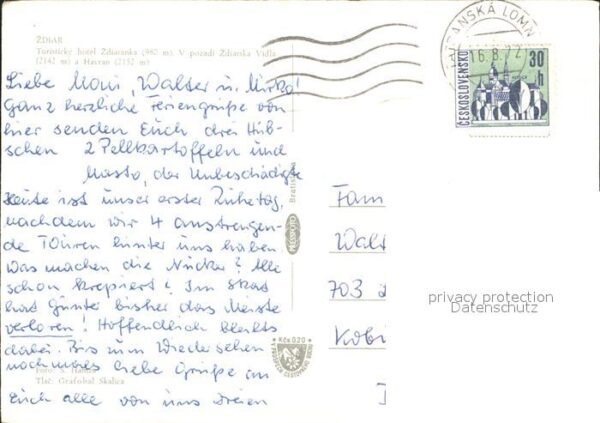 ŽDIAR
Turistický hotel Ždiaranka (982 m). V pozadí Ždiarska Vidla
(2142 m) a Havran (2152 m)
Liebe Moni, Walter u. Mirko!
Ganz herzliche Feriengrüße von
hier senden Euch drei Hüb-
schen 2 Pellkartoffeln und
Masto, der Unbeschädigte
Heute ist unser erster Ruhetag,
nachdem wir 4 anstrengen-
de Touren hinter uns haben
Was machen die Nucker? Alle
schon krepiert? Im Skat
hat Günter bisher das Meiste
verloren! Hoffentlich bleibts
dabei. Bis zum Wiedersehen
nochmals liebe Grüße an
Euch alle von uns Dreien
Tlač: Grafobal Skalica
Bratislava
Kčs 0,20
TATRANSKÁ LOMN
16.8.72
ČESKOSLOVENSKO
30 h
Fam
Walt
703
Kobi
privacy protection
Datenschutz